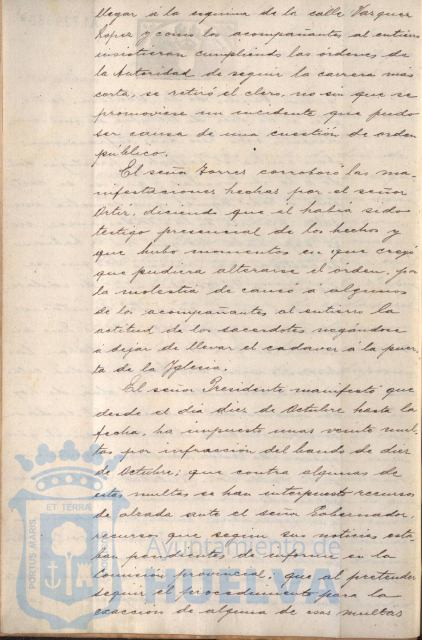 llegar á la esquina de la calle Vazquez
Lopez y como los acompañantes al entierro
insistieran cumpliendo las órdenes de
la Autoridad de seguir la carrera más
corta, se retiró el clero, no sin que se
promoviese un incidente que pudo
ser causa de una cuestión de orden
público.
El señor Torres corroboró las ma-
nifestaciones hechas por el señor
Ortiz, diciendo que él habia sido
testigo presencial de los hechos y
que hubo momentos en que creyó
que pudiera alterarse el órden, por
la molestia de causó á algunos
de los acompañantes al entierro la
actitud de los sacerdotes negándose
á dejar de llevar el cadaver á la puer-
ta de la Yglesia.
El señor Presidente manifestó que
desde el dia diez de Octubre hasta la
fecha, ha impuesto unas veinte mul-
tas por infracción del bando de diez
de Octubre; que contra algunas de
estas multas se han interpuesto recursos
de alzada ante el señor Gobernador,
recursos que segun sus noticias esta-
ban pendientes de informe en la
Comisión provincial; que al pretender
seguir el procedimiento para la
exacción de alguna de esas multas
PORTUS MARIS ET TERRAE
Ayuntamiento de
HUELVA